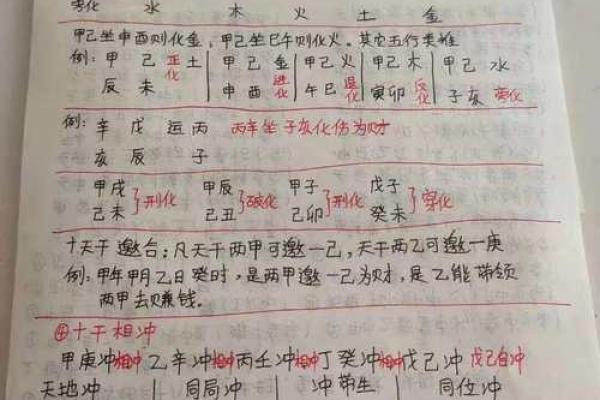 旁化 水 木 火 土 金
甲己坐申酉则化金,甲己坐巳午则化火。其它五行类推
例: 甲 己 正化 土 | 甲 己 金 | 甲 己 火 | 甲 己 木 | 甲 己 水
辰 未 | 申 酉 进化 | 午 巳 退化 | 寅 卯 反化 | 子 亥 旁化
例: 辛 戊 运 丙 丙年坐子亥化伤为财
亥 辰 子
甲戌 甲辰 甲子 戊子
己未 }刑化 己丑 }破化 己卯 }刑化 癸未 }穿化
十天干邀合:凡天干两甲可邀一己,天干两乙可邀一庚
例:甲年甲月乙日癸时,是两甲邀一己为财,是乙能带领
两甲去赚钱。
④十干相冲
甲庚冲相冲 乙辛冲相冲 丙壬冲相冲 丁癸冲相冲 戊己冲 戊己自冲
天地冲 | 同局冲 | 冲带生 | 同位冲